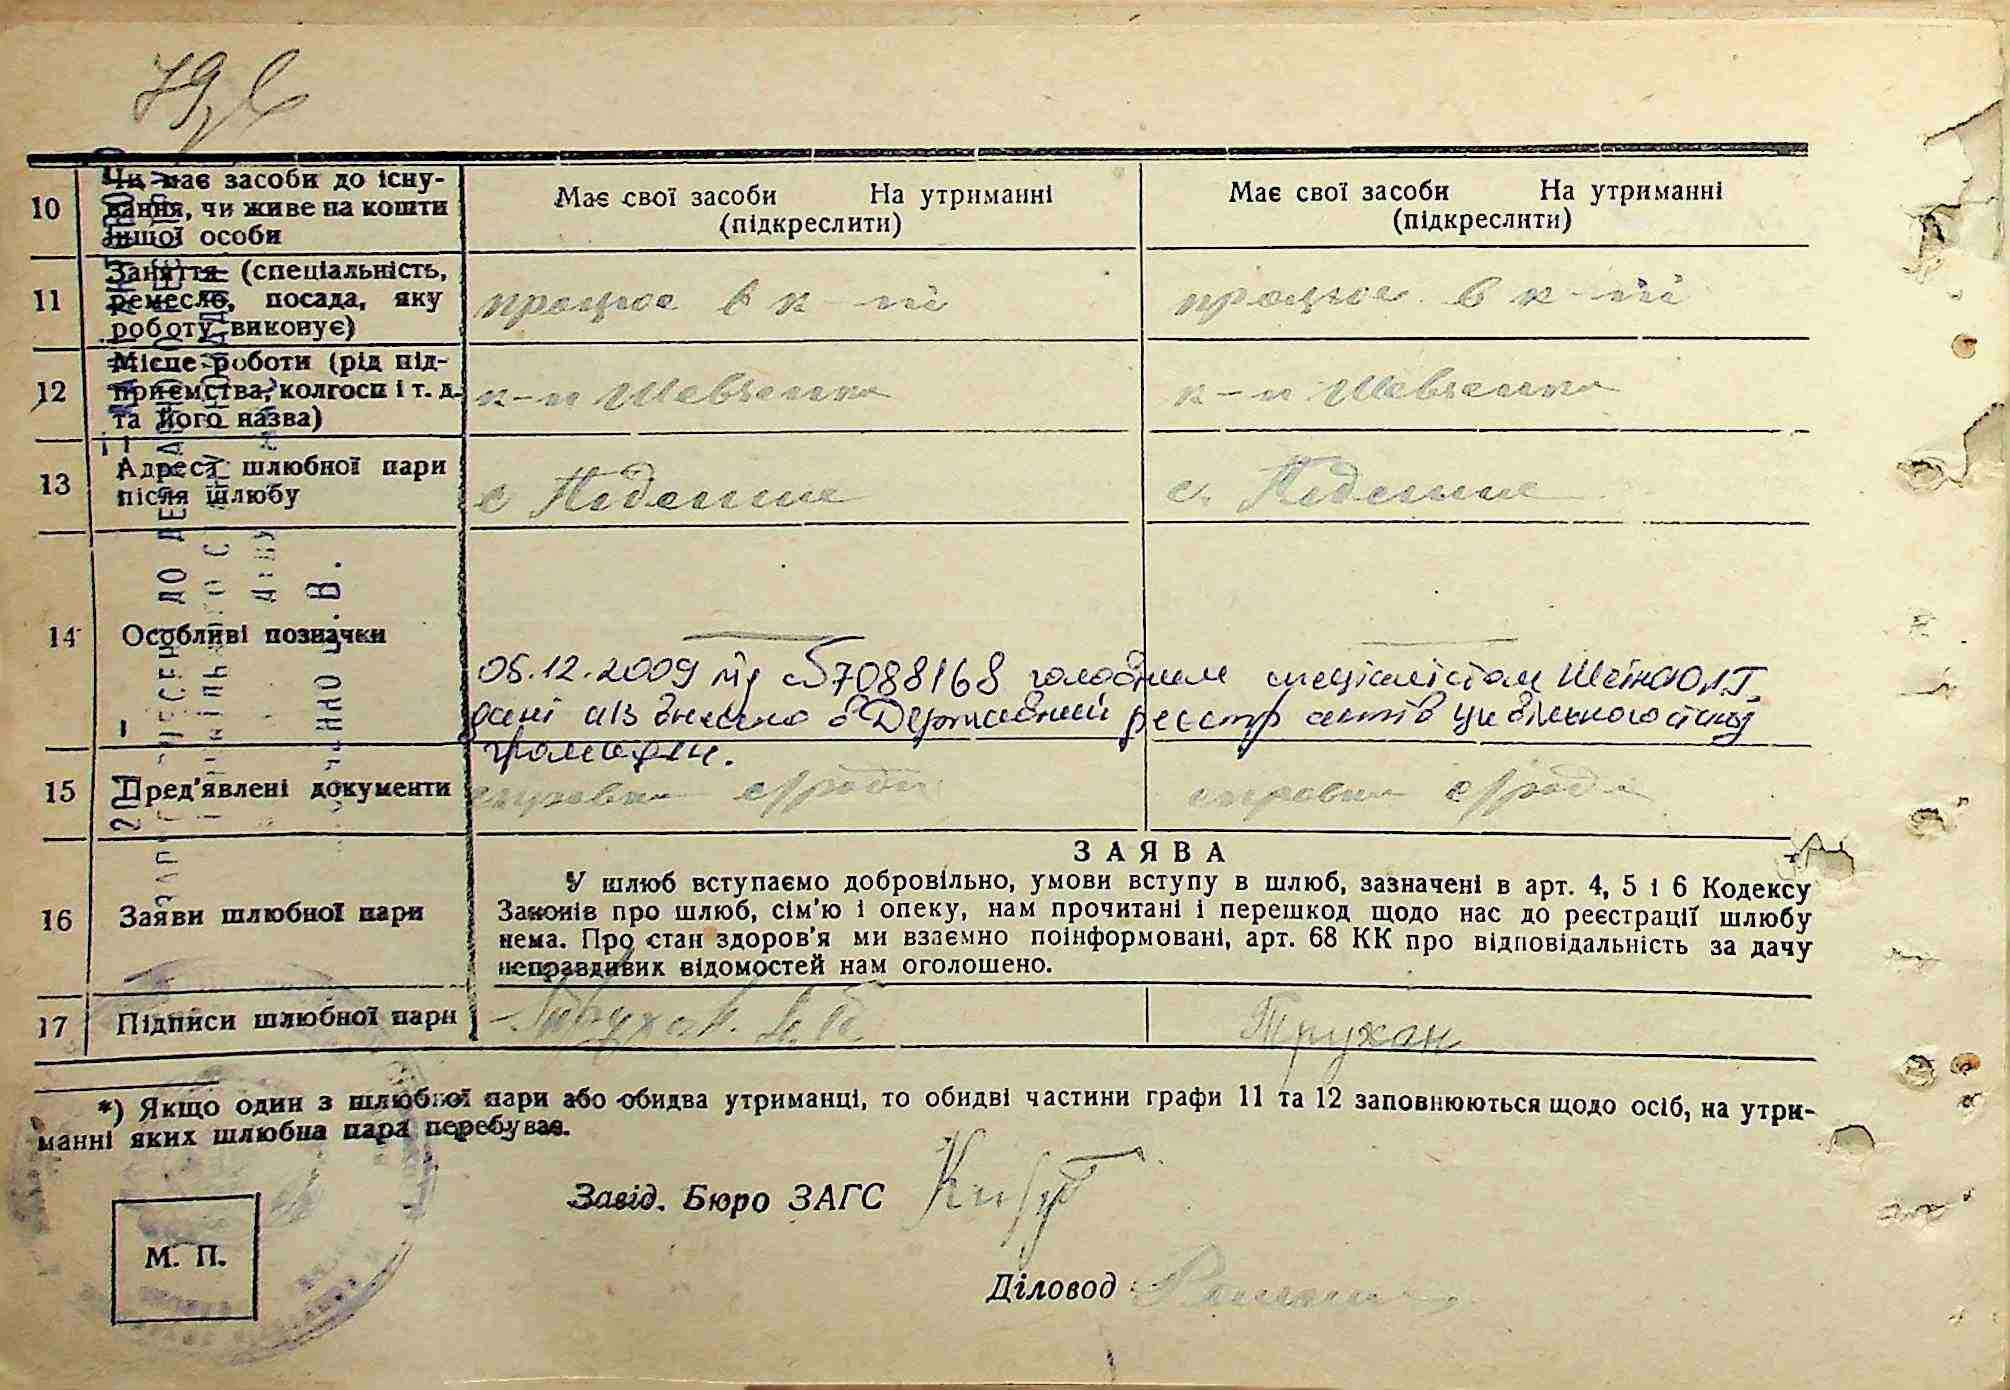 10 Чи має засоби до існу-
вання, чи живе на кошти
іншої особи
Має свої засоби На утриманні
(підкреслити)
Має свої засоби На утриманні
(підкреслити)
11 Заняття (спеціальність,
ремесло, посада, яку
роботу виконує)
працює в к-пі
працює в к-пі
12 Місце роботи (рід під-
приємства, колгосп і т. д.
та його назва)
к-п Шевченка
к-п Шевченка
13 Адреса шлюбної пари
після шлюбу
с
с.
14 Особливі позначки
05.12.2009 під №7088168 головним спеціалістом
дані а/з внесено в Державний реєстр актів цивільного стану
громадян.
15 Пред'явлені документи
справка с/ради
справка с/ради
16 Заяви шлюбної пари
ЗАЯВА
У шлюб вступаємо добровільно, умови вступу в шлюб, зазначені в арт. 4, 5 і 6 Кодексу
Законів про шлюб, сім'ю і опеку, нам прочитані і перешкод щодо нас до реєстрації шлюбу
нема. Про стан здоров'я ми взаємно поінформовані, арт. 68 КК про відповідальність за дачу
неправдивих відомостей нам оголошено.
17 Підписи шлюбної пари
Трухан
*) Якщо один з шлюбної пари або обидва утриманці, то обидві частини графи 11 та 12 заповнюються щодо осіб, на утри-
манні яких шлюбна пара перебуває.
Завід. Бюро ЗАГС
М. П.
Діловод